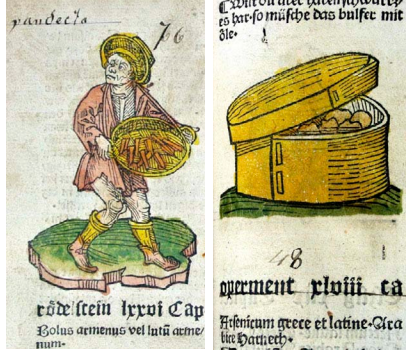 pandecta
76
rödelstein lxxvi Cap
Bolus armenus vel lutū arme/
num·
es har·so müsche das bulfer mit
öle·
48
operment xlviii ca
Arsenicum grece et latine·Ara
bice Harnech·